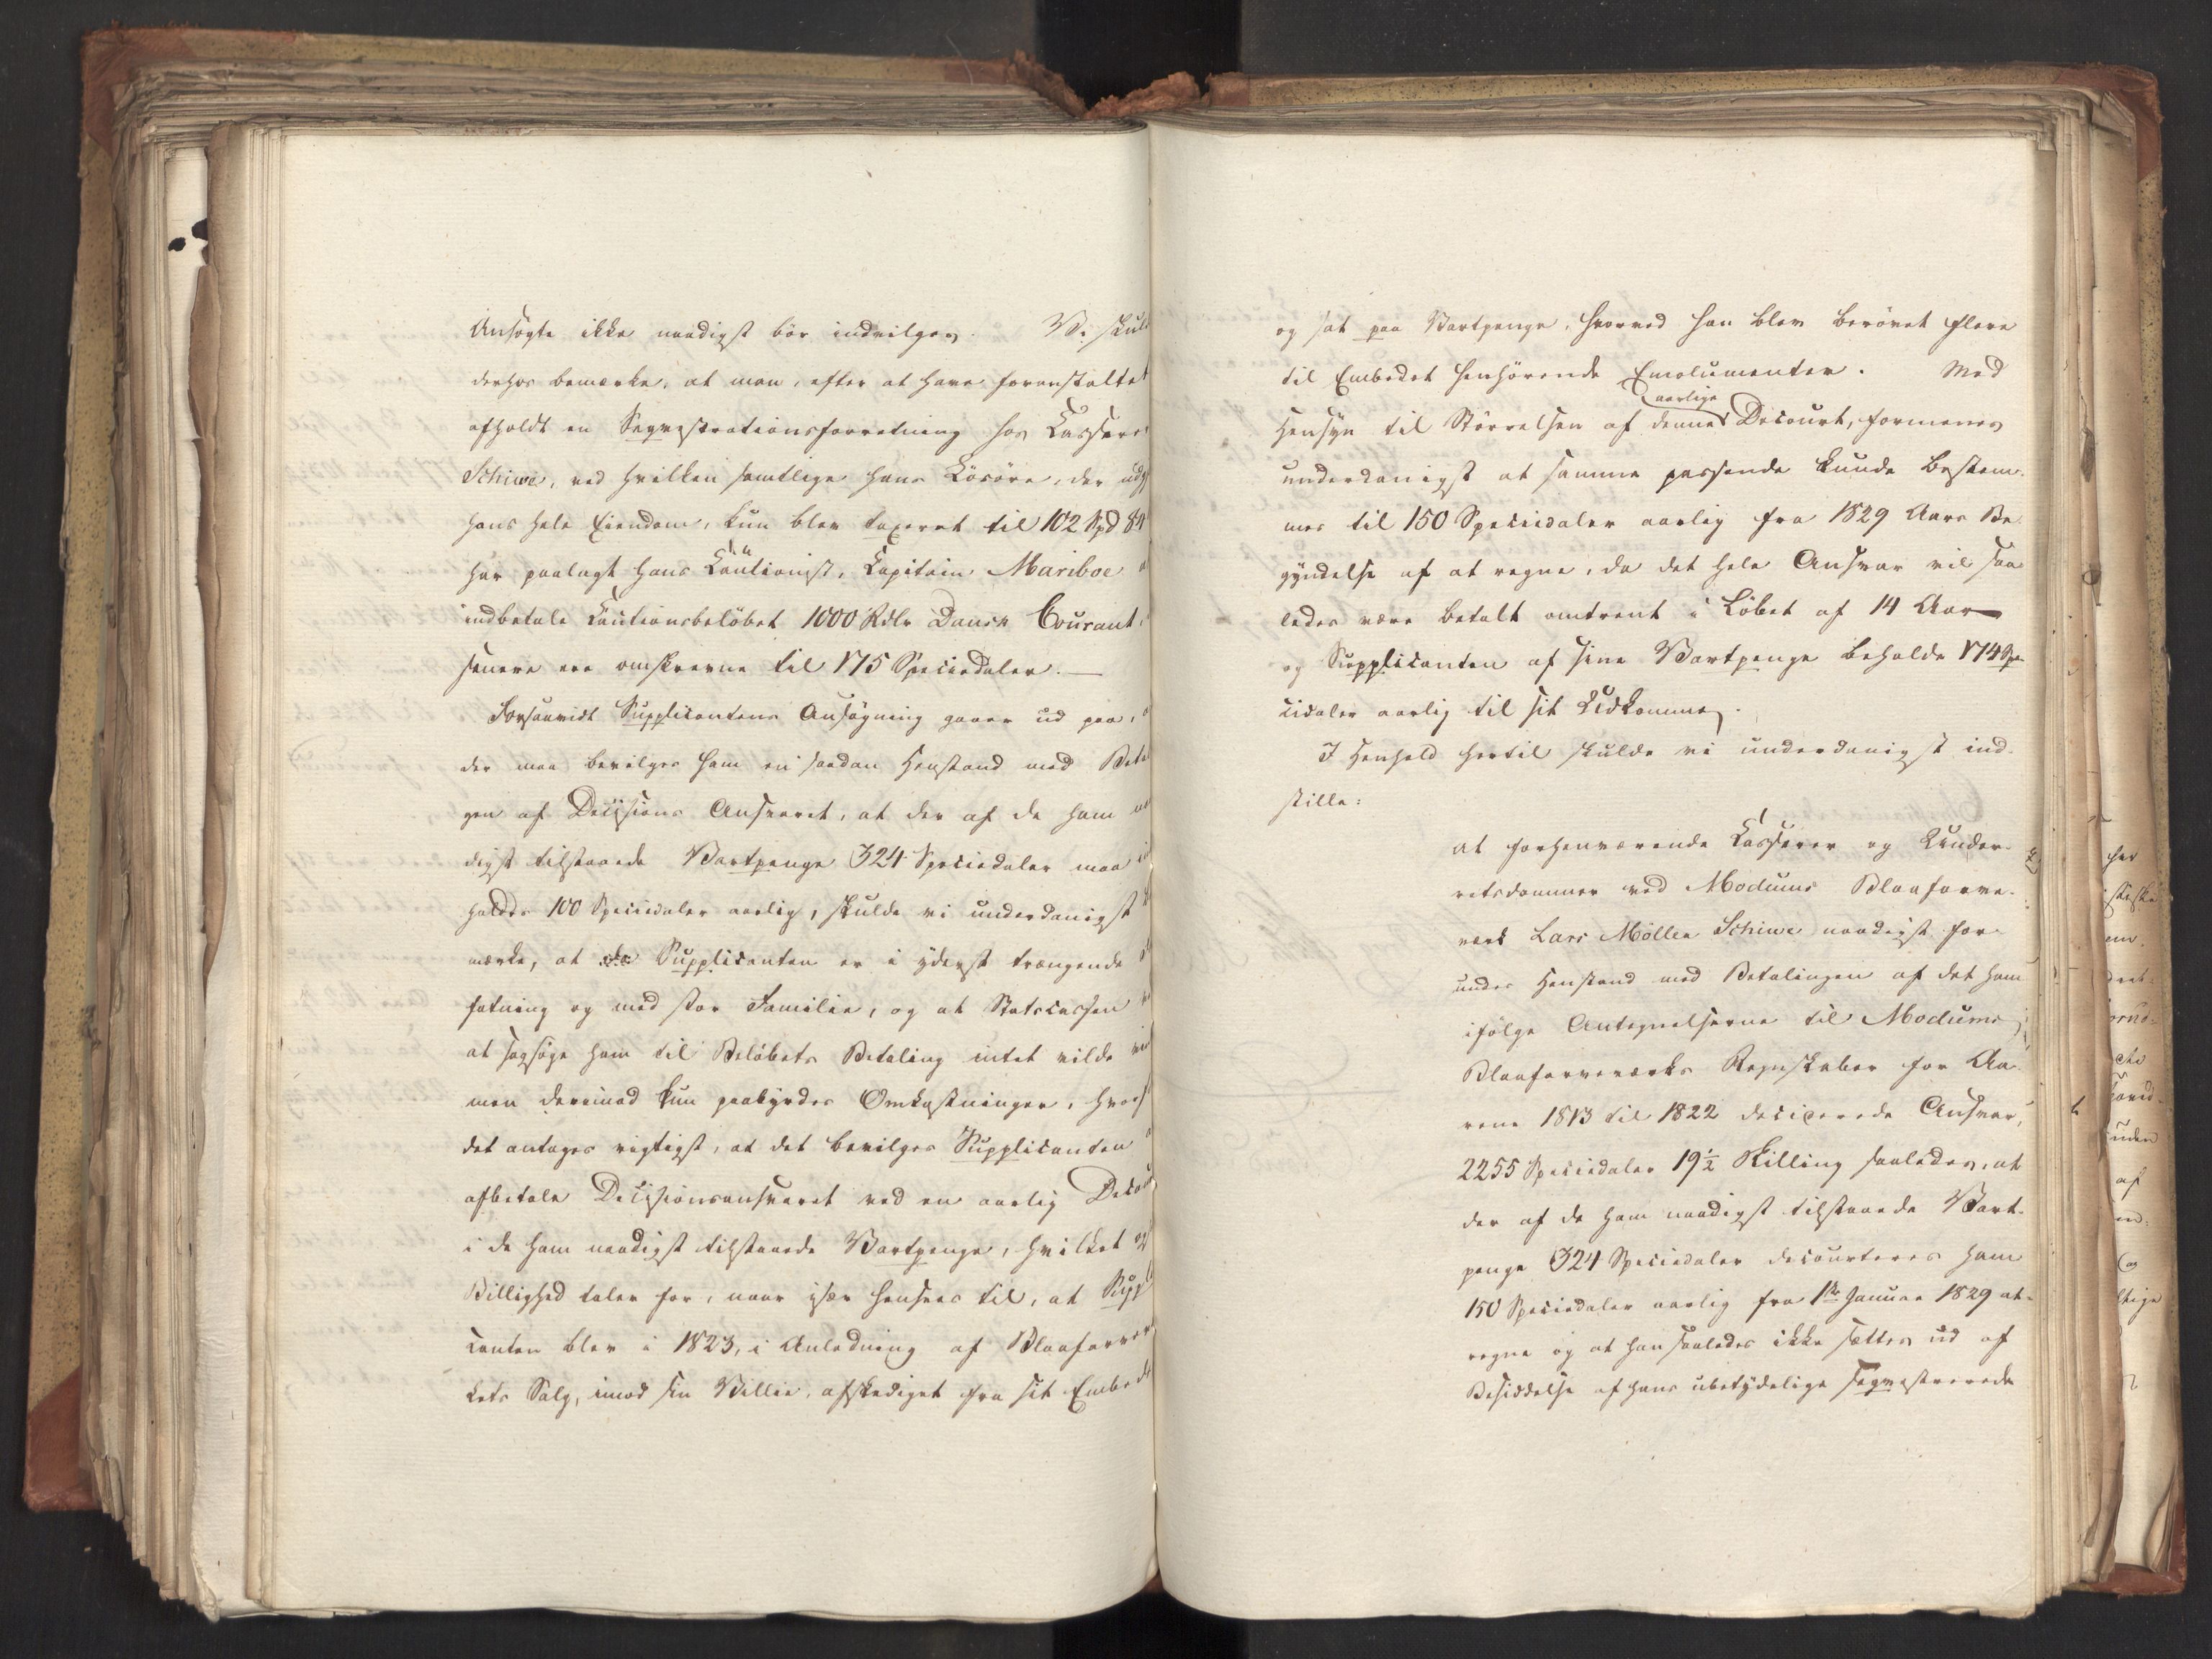 Ansøgte ikke naadigst bør indvilges. Vi skul
derhos bemærke, at man, efter at have foranstaltet
afholdt en Seqvestrationsforretning hos Casserer
Schiwe, ved hvilken samtlige hans Løsøre, der udg
hans hele Eiendom, kun blev taxeret til 102 Spd 84
har paalagt hans Cautionist, Capitain Mariboe a
indbetale Cautionsbeløbet 1000 Rdlr Dansk Courant,
senere ere omskrevne til 175 Speciedaler. —
Forsaavidt Supplicantens Ansøgning gaaer ud paa, a
der maa bevilges ham en saadan Henstand med Beta
gen af Decisions Ansvaret, at der af de ham na
digst tilstaaede Vartpenge 324 Speciedaler maa in
holdes 100 Speciedaler aarlig, skulde vi underdanigst
mærke, at Supplicanten er i yderst trængende
fatning og med stor Familie, og at Statscassen
at sagsøge ham til Beløbets Betaling intet vilde vin
men derimod kun paabyrdes Omkostninger, hvorf
det antages rigtigst, at det bevilges Supplicanten a
afbetale Decisionsansvaret ved en aarlig Decour
i de ham naadigst tilstaaede Vartpenge, hvilket og
Billighed taler for, naar især henseees til, at Suppl
canten blev i 1823, i Anledning af Blaafarvevær
kets Salg, imod sin Villie, afskediget fra sit Embede
og sat paa Vartpenge, hvorved han blev berøvet flere
til Embedet henhørende Emolumenter. Med
aarlige
Hensyn til Størrelsen af denne Decourt, formenes
underdanigst at samme passende kunde bestem-
mes til 150 Speciedaler aarlig fra 1829 Aars Be-
gyndelse af at regne, da det hele Ansvar vil saa
ledes være betalt omtrent i Løbet af 14 Aar
og Supplicanten af sine Vartpenge beholde 174 Spe-
ciedaler aarlig til sit Udkomme.
I Henhold hertil skulde vi underdanigst ind-
stille:
at forhenværende Casserer og Under-
retsdommer ved Modums Blaafarve-
værk Lars Møller Schiwe naadigst for-
undes Henstand med Betalingen af det ham
ifølge Antegnelserne til Modums
Blaafarveværks Regnskaber for Aa-
rene 1813 til 1822 deciderede Ansvar,
2255 Speciedaler 19½ Skilling saaledes, at
der af de ham naadigst tilstaaede Vart-
penge 324 Speciedaler decourteres ham
150 Speciedaler aarlig fra 1ste Januar 1829 at-
regne og at han saaledes ikke sættes ud af
Besiddelse af hans ubetydelige seqvestrerede